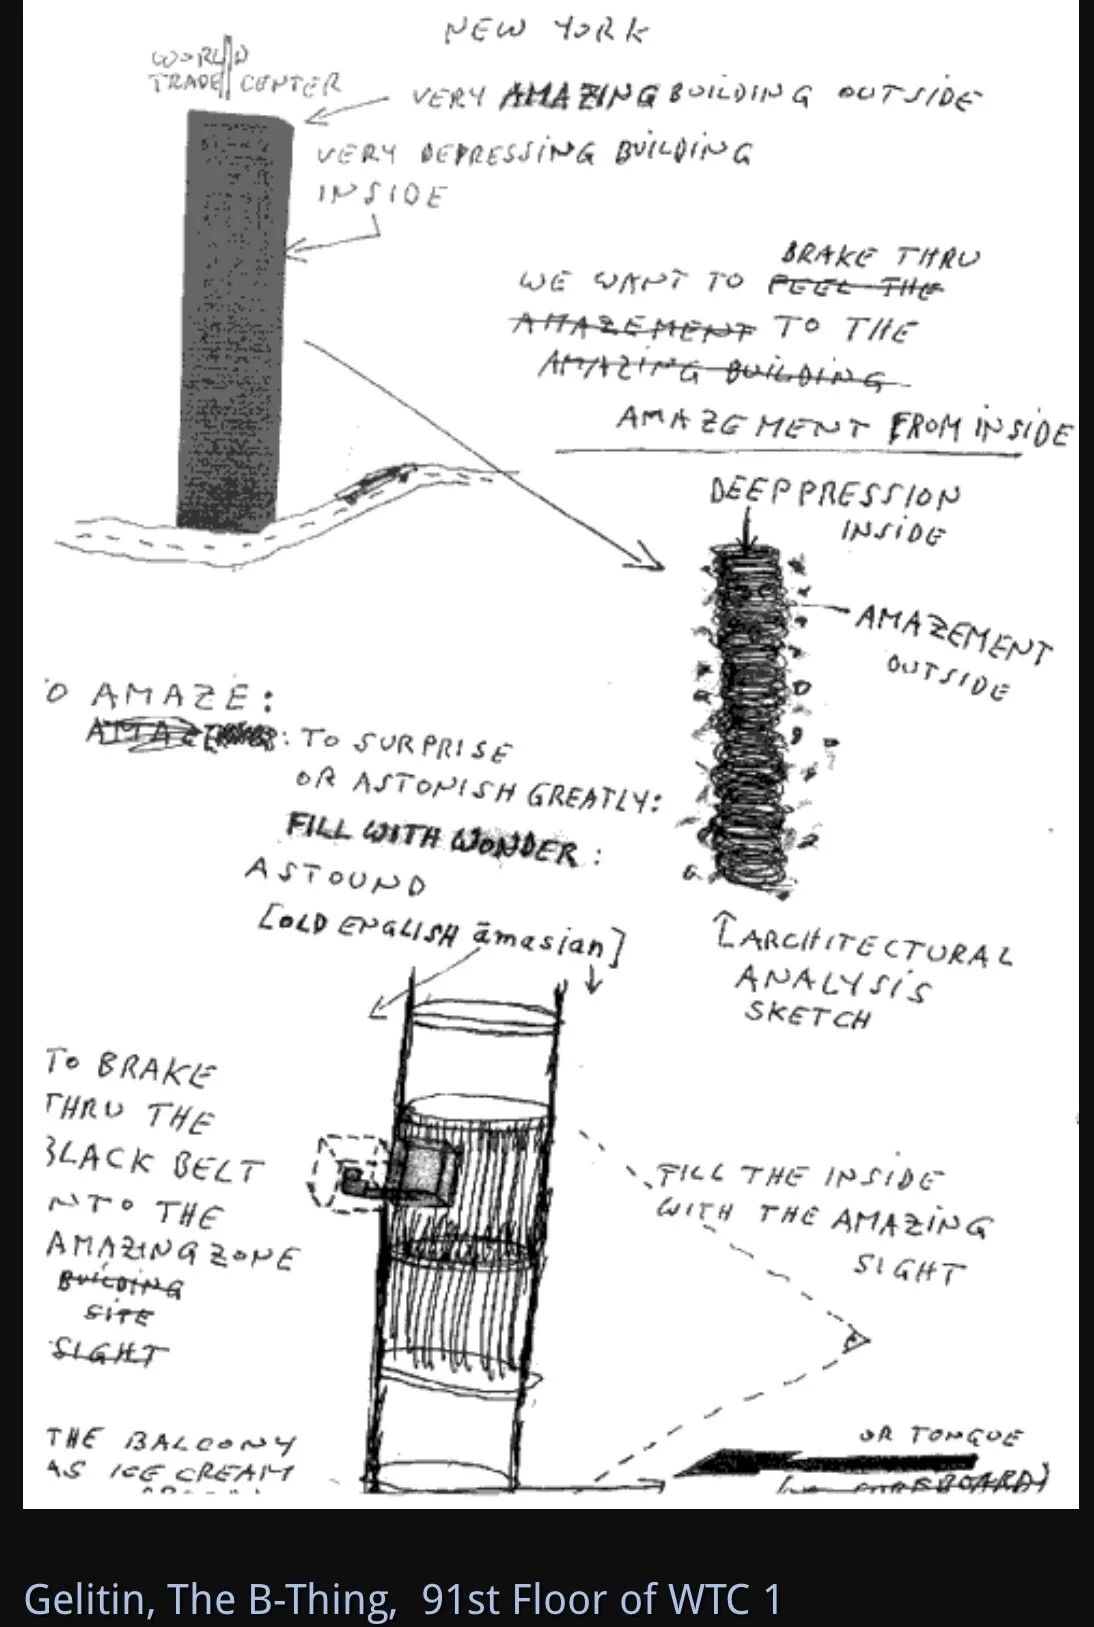 NEW YORK
WORLD
TRADE CENTER
VERY AMAZING BUILDING OUTSIDE
VERY DEPRESSING BUILDING
INSIDE
BRAKE THRU
WE WANT TO FEEL THE
AMAZEMENT TO THE
AMAZING BUILDING
AMAZEMENT FROM INSIDE
DEEPPRESSION
INSIDE
AMAZEMENT
OUTSIDE
O AMAZE:
: TO SURPRISE
OR ASTONISH GREATLY:
FILL WITH WONDER:
ASTOUND
[OLD ENGLISH āmasian]
ARCHITECTURAL
ANALYSIS
SKETCH
TO BRAKE
THRU THE
BLACK BELT
NTO THE
AMAZING ZONE
BUILDING
SITE
SIGHT
FILL THE INSIDE
WITH THE AMAZING
SIGHT
THE BALCONY
AS ICE CREAM
OR TONGUE
Gelitin, The B-Thing, 91st Floor of WTC 1